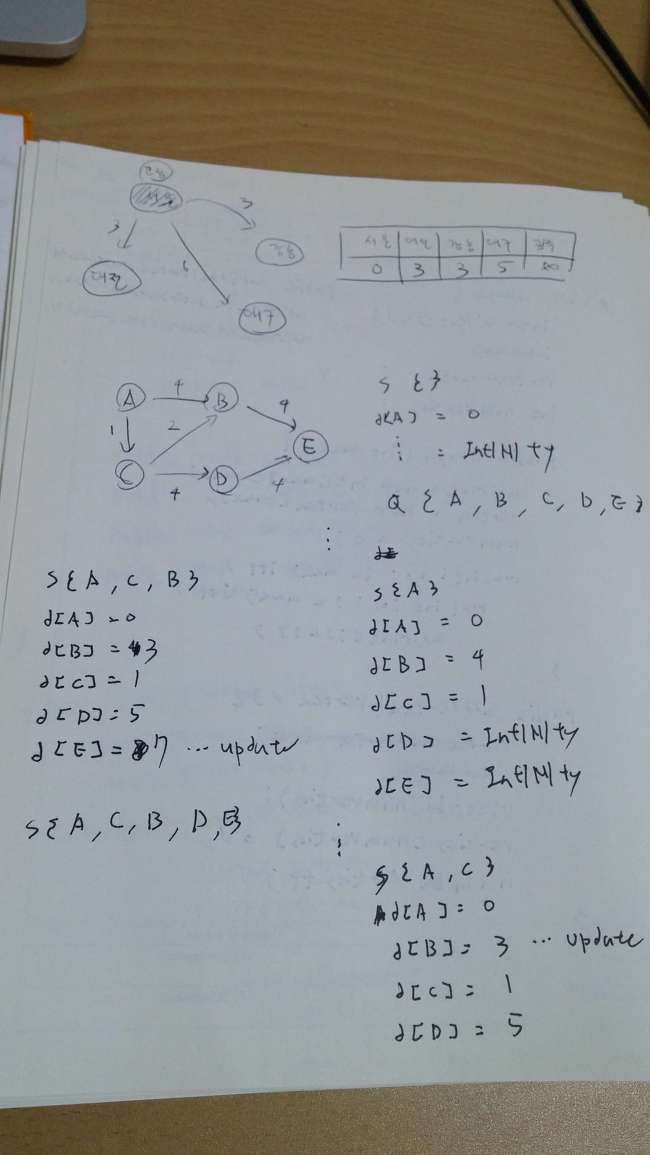 서울
3
3
강릉
대전
6
대구
서울 대전 강릉 대구 광주
0 3 3 5 ∞
A 4 B
1 2 4
E
C 4 D 4
S { }
d[A] = 0
⋮ = Infinity
Q { A , B , C , D , E }
⋮
S{A}
d[A] = 0
d[B] = 4
d[C] = 1
d[D] = Infinity
d[E] = Infinity
⋮
S { A , C }
d[A] = 0
d[B] = 3 … update
d[C] = 1
d[D] = 5
S{ A , C , B }
d[A] = 0
d[B] = 3
d[C] = 1
d[D] = 5
d[E] = 7 … update
S{ A , C , B , D , E}